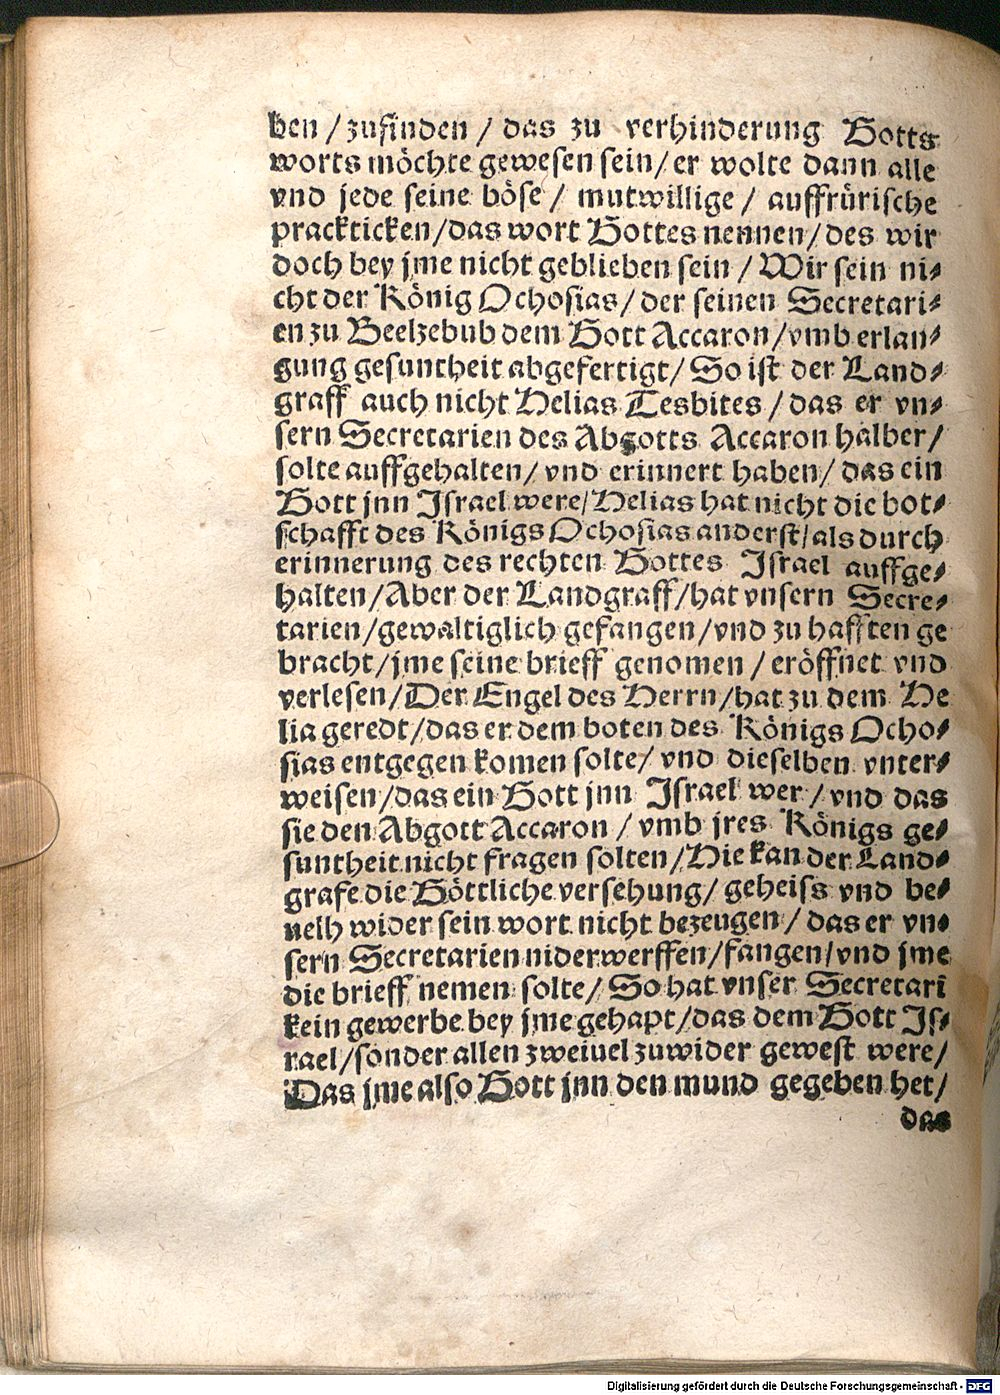 ben / zufinden / das zu verhinderung Gotts
worts möchte gewesen sein / er wolte dann alle
vnd jede seine böse / mutwillige / auffrürische
prackticken / das wort Gottes nennen / des wir
doch bey jme nicht geblieben sein / Wir sein ni⸗
cht der König Ochosias / der seinen Secretari⸗
en zu Beelzebub dem Gott Accaron / vmb erlan⸗
gung gesuntheit abgefertigt / So ist der Land⸗
graff auch nicht Helias Tesbites / das er vn⸗
sern Secretarien des Abgotts Accaron halber /
solte auffgehalten / vnd erinnert haben / das ein
Gott jnn Israel were / Helias hat nicht die bot⸗
schafft des Königs Ochosias anderst / als durch
erinnerung des rechten Gottes Israel auffge⸗
halten / Aber der Landgraff / hat vnsern Secre⸗
tarien / gewaltiglich gefangen / vnd zu hafften ge
bracht / jme seine brieff genomen / eröffnet vnd
verlesen / Der Engel des Herrn / hat zu dem He
lia geredt / das er dem boten des Königs Ocho⸗
sias entgegen komen solte / vnd dieselben vnter⸗
weisen / das ein Gott jnn Israel wer / vnd das
sie den Abgott Accaron / vmb jres Königs ge⸗
suntheit nicht fragen solten / Hie kan der Land⸗
grafe die Göttliche versehung / geheiss vnd be⸗
uelh wider sein wort nicht bezeugen / das er vn⸗
sern Secretarien niderwerffen / fangen / vnd jme
die brieff nemen solte / So hat vnser Secretarī
kein gewerbe bey jme gehapt / das dem Gott Is⸗
rael / sonder allen zweiuel zuwider gewest were /
Das jme also Gott jnn den mund gegeben het /
das
Digitalisierung gefördert durch die Deutsche Forschungsgemeinschaft - DFG